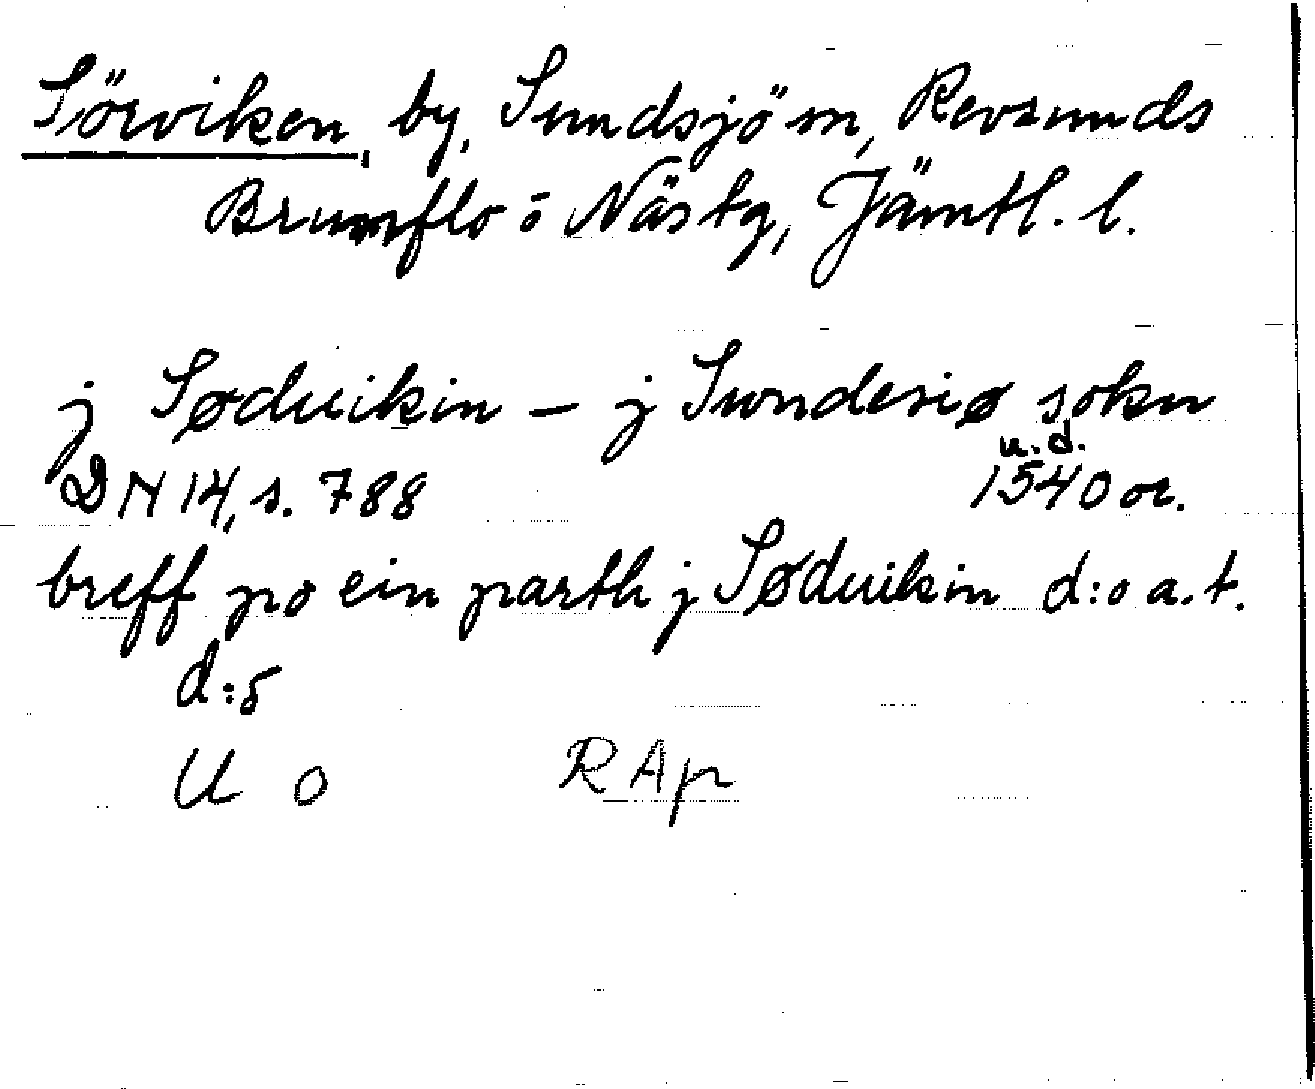 Sörviken, by, Sundsjö sn, Revsunds
Brunflo o Näs tg, Jämtl. l.
j Søduikin – j Sundesiø sokn
u. d.
DN 14, s. 788 1540 or.
breff po ein parth j Søduikin d:o a.t.
d:o
U o RAp